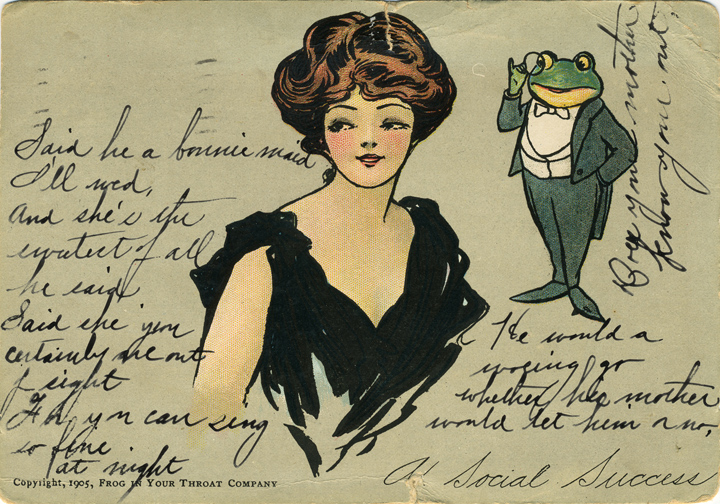 Said he a bonnie maid
I'll wed,
And she's the
sweetest of all
he said
Said she you
certainly are out
of sight
For you can sing
so fine
at night
Copyright, 1905, FROG IN YOUR THROAT COMPANY
Does your mother
know your out
He would a
wooing go
whether his mother
would let him or no,
A Social Success